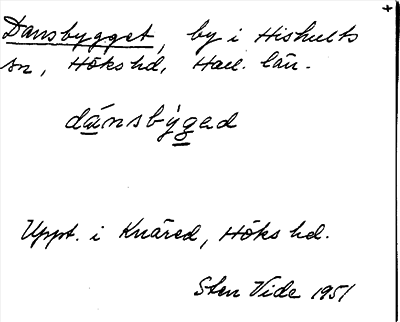 Dansbygget, by i Hishults
sn, Höks hd, Hall. län.
dánsbýgad
Uppt. i Knäred, Höks hd.
Sten Vide 1951